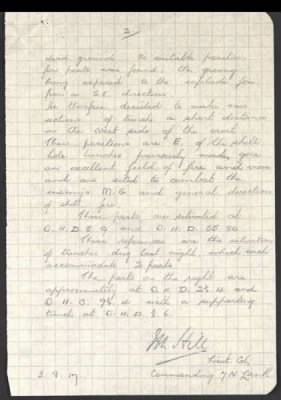 2
dead ground. No suitable position
for posts was found; the ground
being exposed to the enfilade fire
from a S.E. direction.
He therefore decided to make new
sections of trench a short distance
on the West side of the crest.
These positions are E. of the shell
hole trenches previously made, give
an excellent field of fire and view
and are sited to combat the
enemys M.G and general direction
of shell fire.
These posts are situated at
O.11.D.5.9 and O.11.D.55.80
These references are the situation
of trenches dug last night which will
accommodate 2 posts
The posts on the right are
approximately at O.11.D. 2½.4 and
O.11.C. 9½.4 with a supporting
trench at O.11.D. ½.6.
Hill
Lieut. Col.
Commanding 7 N. Lancs
3.8.17